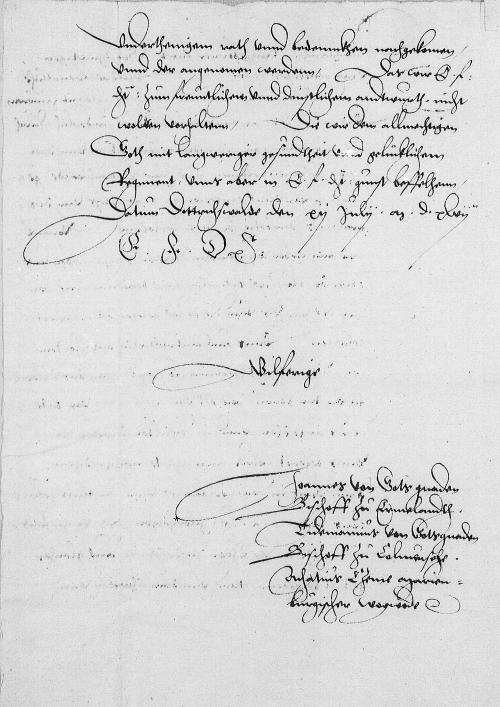 Underthenigem rath vnnd bedennckhen nachgekomen,
vnnd der angenomen werdenn, Das wir E f:
dt: zum freuntlichem vnnd dinstlichem antwurth nicht
wolten vorhaltenn. Die wir dem allmechtigen
Goth mit langweriger gesundtheit vnnd gelucklichem
Regiment, vnns aber in E f. dt: gunst beffelhenn,
Datum Dittrichswalde den xij Julij. a. d. xlvij
E. F. D
Wilferige
Joannes von Gots gnaden
Bischoff zu Ermelandth.
Tidemannus von Gotsgnaden
Bischoff zu Colmensehe.
Achatius Cheme marien=
burgischer woywode